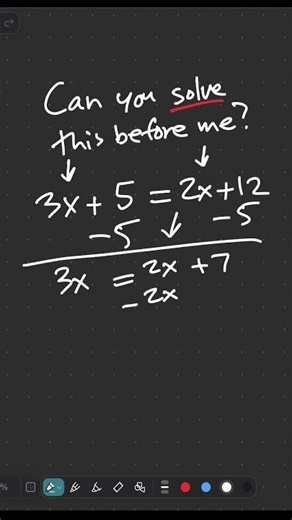 Can you solve
this before me?
3x + 5 = 2x + 12
-5 -5
3x = 2x + 7
-2x
%